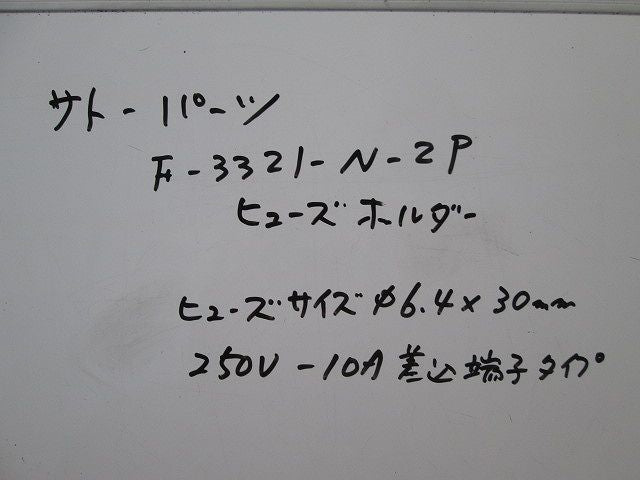 サトーパーツ
F-3321-N-2P
ヒューズホルダー
ヒューズサイズ φ6.4×30mm
250V-10A 差込端子タイプ